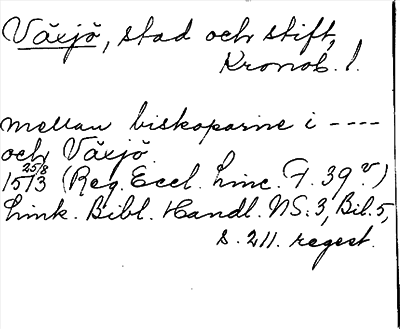 Växjö, stad och stift,
Kronob. l.
mellan biskoparne i ----
och Växjö.
15 25/8 13 (Reg. Eccl. Linc. F. 39 v)
Link. Bibl. Handl. NS. 3, Bil. 5,
s. 211. regest.